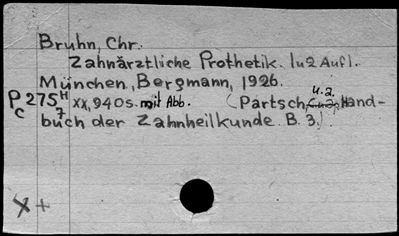 Bruhn, Chr.
Zahnärztliche Prothetik. 1u2 Aufl.
München, Bergmann, 1926.
P 275 H xx, 940 s. mit Abb. (Partsch, u.a. Hand-
c 7 buch der Zahnheilkunde. B. 3.)
X +